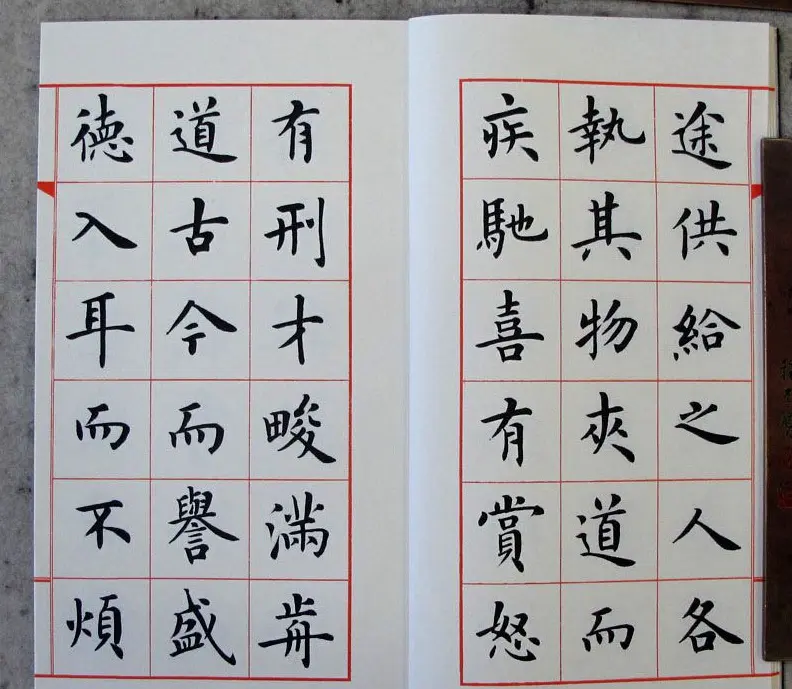 途供給之人各
執其物夾道而
疾馳喜有賞怒
有刑才畯滿歬
道古今而譽盛
德入耳而不煩